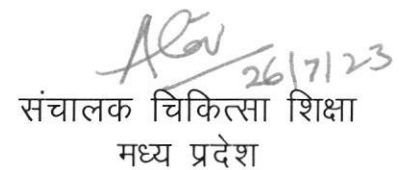 26/7/23
संचालक चिकित्सा शिक्षा
मध्य प्रदेश